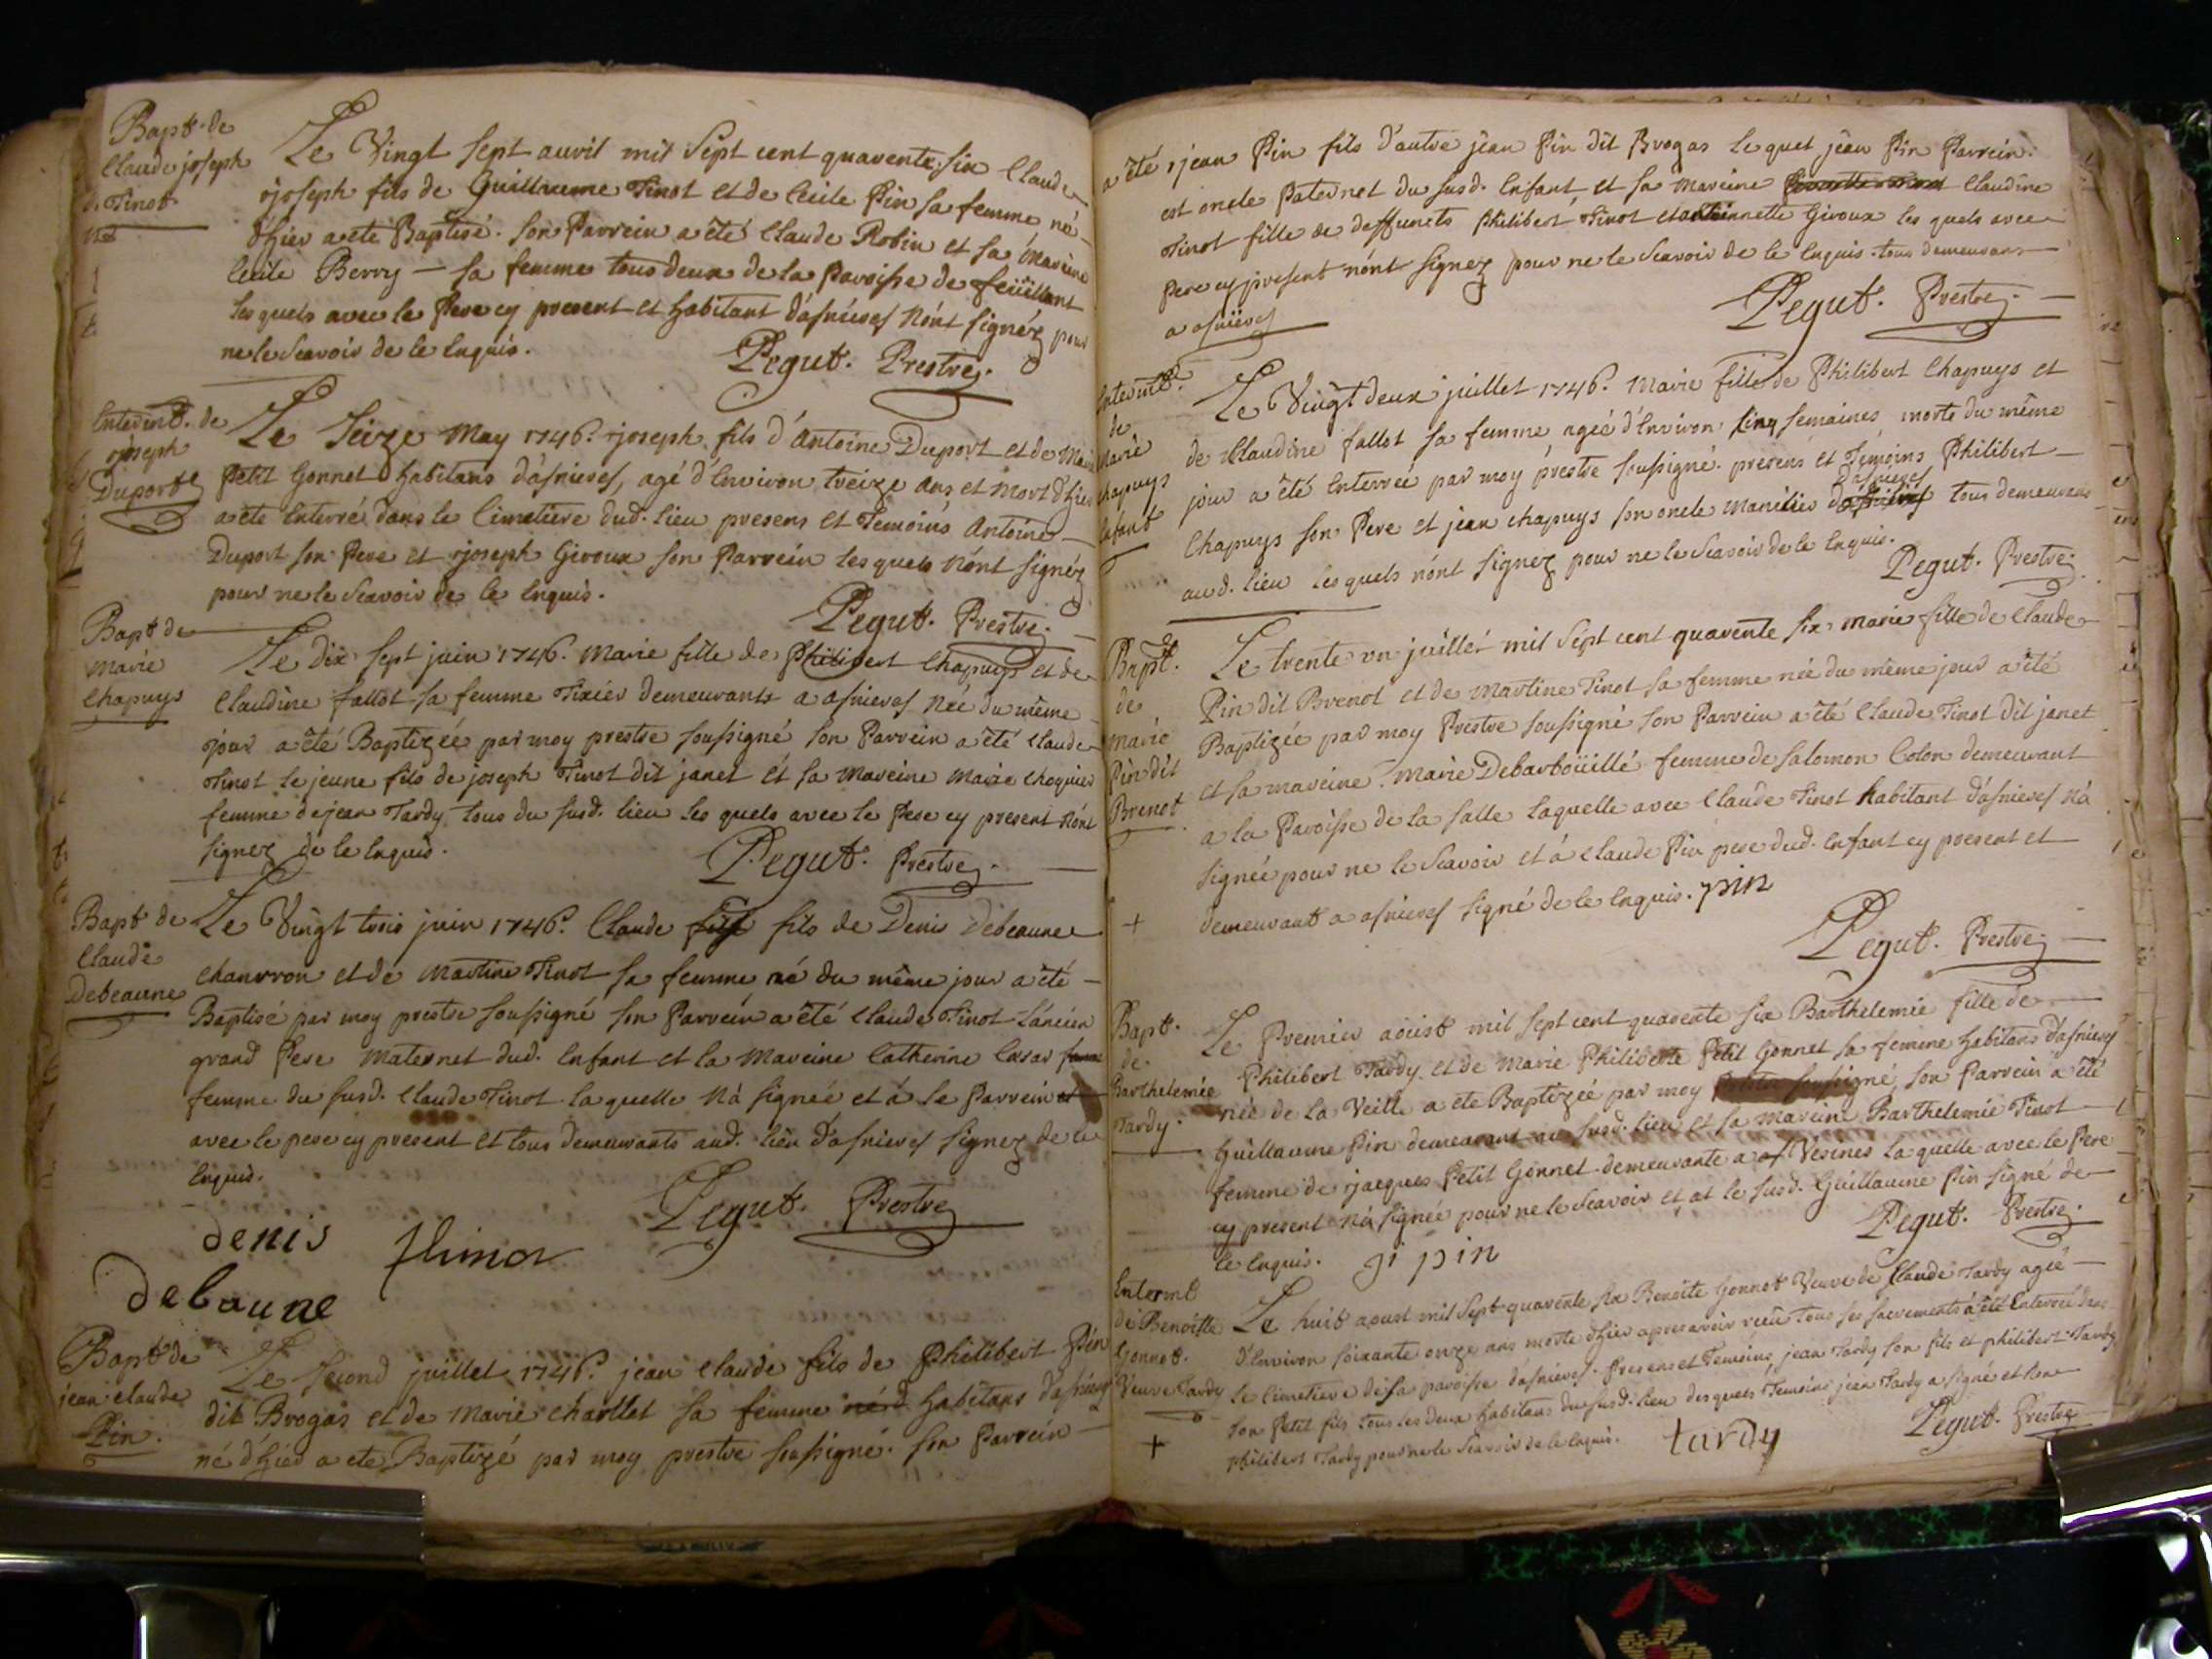 Bapt. de
Claude joseph
Tinot
Le Vingt sept auvil mil Sept cent quarente six Claude
joseph fils de Guillaume Tinot et de Cecile Pin sa femme né
d'hier a ete Baptisé. son Parrein a été Claude Robin et sa Mareine
Cecile Berry – sa femme tous deux de la Paroisse de feüillant
lesquels avec le Pere cy present et habitant d'asnieres n'ónt signéz pour
ne le Scavoir de le Enquis. Pegut. Prestre.
Enterint. de
joseph
Duport
Le Seize May 1746. joseph fils d'Antoine Duport et de Marie
Petit Gonnet habitans d'asnieres, agé d'Environ treize ans et Mort d'hier
a ete Enterré dans le Cimetiere dud. lieu presens et Temoins Antoine
Duport son Pere et joseph Giroux son Parrein lesquels n'ónt signéz
pour ne le Scavoir de le Enquis.
Pegut. Prestre.
Bapt de
Marie
Chapuys
Le dix sept juin 1746. Marie fille de Philibert Chapuys et de
Claudine fallot sa femme Tixier demeurants a asnieres Née du même
jour a été Baptizée par moy prestre soussigné son Parrein a été Claude
Tinot le jeune fils de joseph Tinot dit janet et sa Mareine Marie Choquier
femme de jean Tardy tous du susd. lieu les quels avec le Pere cy present n'ónt
signez de le Enquis. Pegut. Prestre.
Bapt de
Claude
Debeaune
Le Vingt trois juin 1746. Claude fils fils de Denis Debeaune
chanvron et de Martine Tinot sa femme né du même jour a été
Baptisé par moy prestre soussigné son Parrein a été Claude Tinot L'áncien
grand Pere Maternel dud. Enfant et la Mareine Catherine
femme du susd. Claude Tinot laquelle n'á signée et á le Parrein et
avec le pere cy present et tous demeurants aud. lieu d'asnieres signez de le
Enquis.
Pegut. Prestre
denis
debaune
thinot
Bapt de
jean claude
Pin.
Le Second juillet 1746. jean claude fils de Philibert Pin
dit Brogas et de Marie charllet sa femme habitans d'asnieres
né d'hier a ete Baptizé par moy prestre soussigné. son Parrein
a été jean Pin fils d'autre jean Pin dit Brogas lequel jean Pin Parrein
est oncle Paternel du susd. Enfant, et sa Mareine Claudine
Tinot fille de deffuncts Philibert Tinot et antoinnette Giroux les quels avec
Pere cy present n'ónt signez pour ne le Scavoir de le Enquis. tous demeurans
a asnieres
Pegut. Prestre.
Enterint.
de
Marie
chapuys
Enfant
Le Vingt deux juillet 1746. Marie fille de Philibert Chapuys et
de Claudine fallot sa femme agée d'Environ Cinq semaines morte du même
jour a été Enterrée par moy prestre soussigné. presens et Témoins Philibert
Chapuys son Pere et jean chapuys son oncle Manélier d'asnieres tous demeurans
aud. lieu lesquels n'ónt signez pour ne le Scavoir de le Enquis.
Pegut. Prestre.
Bapt.
de
marie
Pin dit
Brenot
Le trente un juillet mil Sept cent quarente six marie fille de Claude
Pin dit Brenot et de Martine Tinot sa femme née du même jour a été
Baptizée par moy Prestre soussigné son Parrein a été Claude Tinot dit janet
et sa mareine Marie Debarboüillé femme de Salomon Colon demeurant
a la Paroisse de la Salle laquelle avec Claude Tinot habitant d'asnieres n'á
signée pour ne le Scavoir et á Claude Pin pere dud. Enfant cy present et
+ demeurant a asnieres signé de le Enquis. pin
Pegut. Prestre.
Bapt.
de
Barthelemie
Tardy.
Le Premier aoust mil sept cent quarente six Barthelemie fille de
Philibert Tardy et de Marie Philiberte Petit Gonnet sa femme habitans d'asnieres
née de la Veille a ete Baptizée par moy prestre soussigné, son Parrein a été
Guillaume Pin demeurant au susd. lieu et sa Mareine Barthelemie Tinot
femme de jacques Petit Gonnet demeurante a Vesines laquelle avec le Pere
cy present n'á signée pour ne le Scavoir et at le susd. Guillaume Pin signé de
le Enquis. gi pin
Pegut. Prestre.
Enterint
de Benoitte
Gonnot.
Veuve Tardy
+
Le huit aoust mil Sept quarente six Benoite Gonnot Veuve de Claude Tardy agée
d'Environ soixante onze ans morte d'hier apres avoir reçu tous ses sacrements a été Enterrée dans
le cimetiere de la paroisse d'asnieres. Presens et Temoins, jean Tardy son fils et philibert Tardy
son Petit fils tous les deux habitans du susd. lieu desquels Temoins jean Tardy a signé et non
Philibert Tardy pour ne le Scavoir de le Enquis.
tardy
Pegut. Prestre